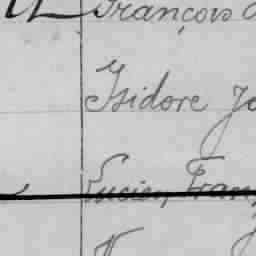 François
Isidore Jo
Lucien, Fran